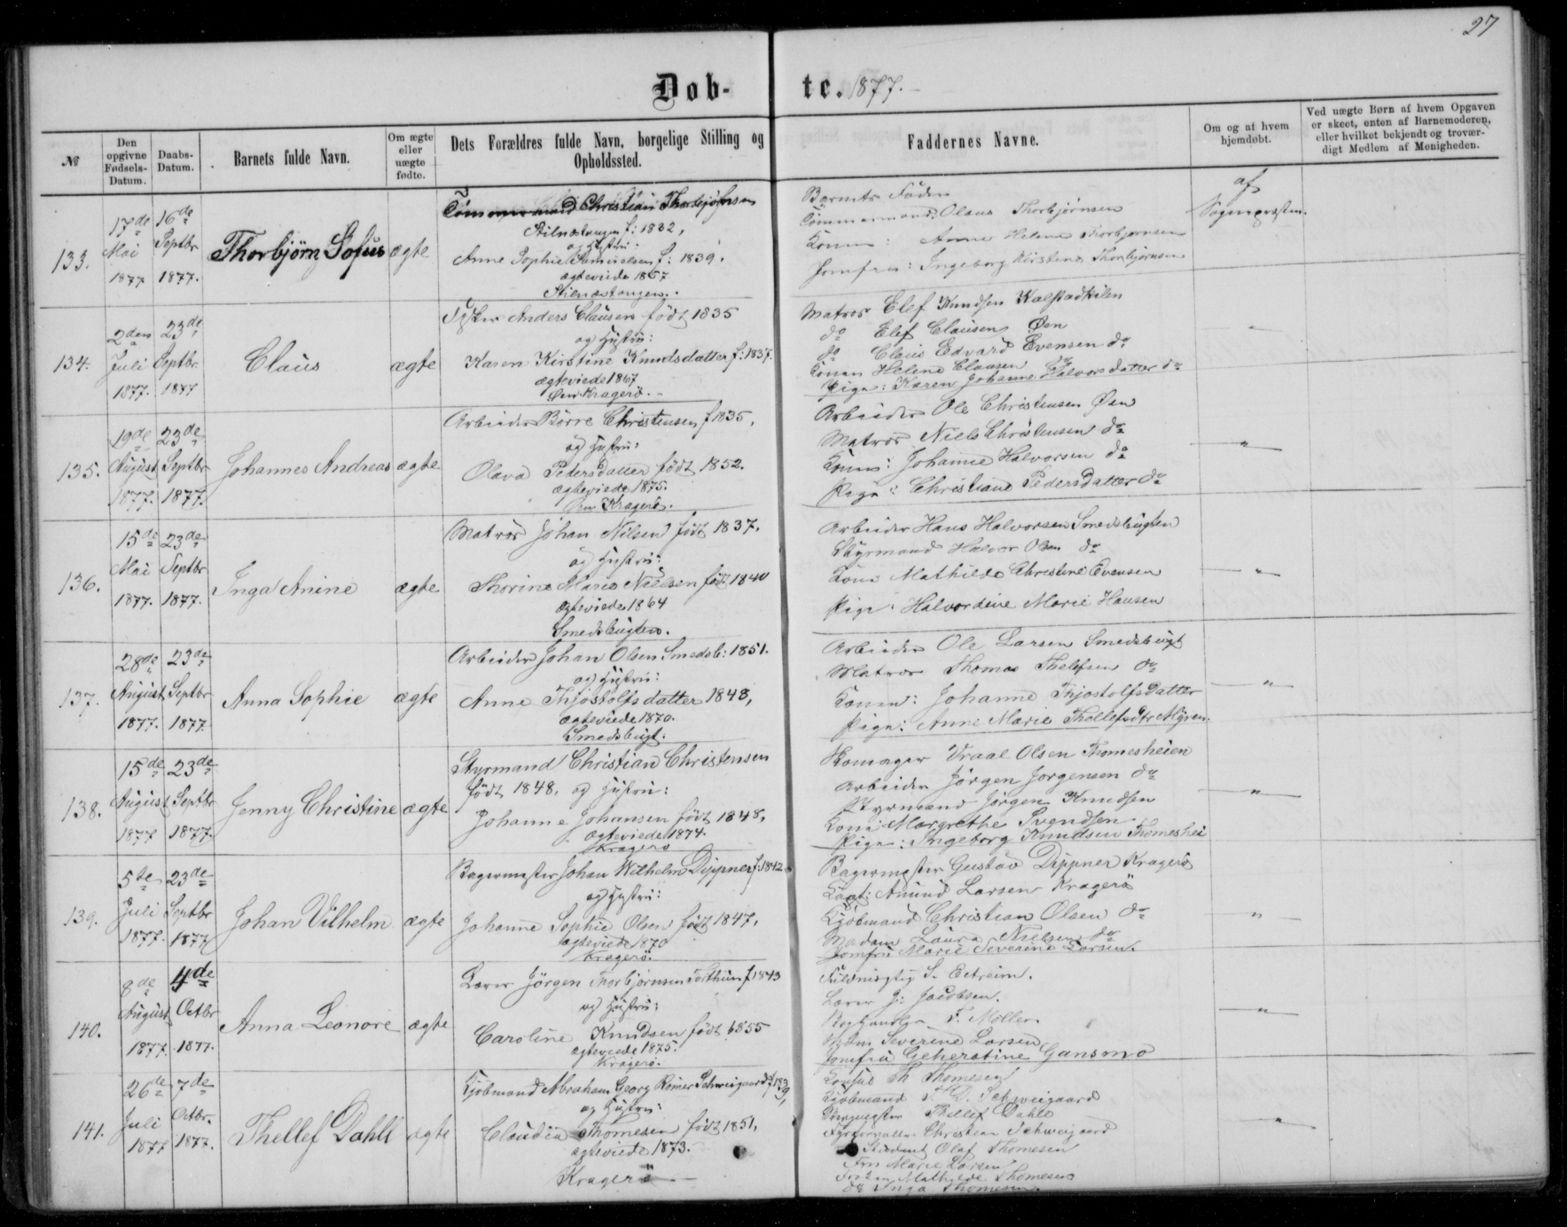 27
Døb- te. 1877.
№
Den opgivne Fødsels-Datum.
Daabs-Datum.
Barnets fulde Navn.
Om ægte eller uægte fødte.
Dets Forældres fulde Navn, borgelige Stilling og Opholdssted.
Faddernes Navne.
Om og af hvem hjemdøbt.
Ved uægte Børn af hvem Opgaven er skeet, enten af Barnemoderen, eller hvilket bekjendt og troværdigt Medlem af Menigheden.
133.
17de Mai 1877
16de Septbr 1877.
Thorbjørn Sofus
ægte
Tømmermand Christian Thorbjørnsen
Stilnæstangen f: 1832,
og Hustru:
Anne Sophie Samuelsen f: 1839.
ægteviede 1857
Stilnæstangen.
Barnets Fader
Tømmermand Olaus Thorbjørnsen
Konen: Anne Helene Thorbjørnsen
Jomfru: Ingeborg Kirstine Thorbjørnsen
af Sognepresten.
134.
2den Juli 1877.
23de Septbr 1877
Claus
ægte
Fisker Anders Clausen født 1835
og Hustru:
Karen Kirstine Knudsdatter f: 1837.
ægteviede 1867
Øen Kragerø.
Matros Elef Knudsen Kalstadkilen
do Elef Clausen Øen
do Claus Edvard Evensen do
Konen Helene Clausen do
Pige: Karen Johanne Halvorsdatter do
"
135.
19de August 1877.
23de Septbr 1877.
Johannes Andreas
ægte
Arbeider Børre Christensen f 1835,
og Hustru:
Olava Pedersdatter født 1852.
ægteviede 1875.
Øen Kragerø.
Arbeider Ole Christensen Øen
Matros Niels Christensen do
Konen: Johanne Halvorsen do
Pige: Christiane Pedersdatter do
"
136.
15de Mai 1877.
23de Septbr 1877.
Inga Anine
ægte
Matros Johan Nilsen født 1837,
og Hustru:
Thorine Marie Nielsen født 1840
ægteviede 1864
Smedsbugten.
Arbeider Hans Halvorsen Smedsbugten
Styrmand Halvor Olsen do
Kone Mathilde Christine Evensen
Pige: Halvordine Marie Hansen
"
137.
28de August 1877.
23de Septbr 1877.
Anna Sophie
ægte
Arbeider Johan Olsen Smedsb: 1851.
og Hustru:
Anne Thjostolfsdatter 1848,
ægteviede 1870.
Smedsbugt.
Arbeider Ole Larsen Smedsbugt
Matros Thomas Thelefsen do
Konen: Johanne Thjostolfsdatter
Pige: Anne Marie Thollefsdtr Myren.
"
138.
15de August 1877
23de Septbr 1877.
Jenny Christine
ægte
Styrmand Christian Christensen
født 1848, og Hustru:
Johanne Johansen født 1848,
ægteviede 1874.
Kragerø
Vraal Olsen Thomesheien
Arbeider Jørgen Jørgensen do
Styrmand Jørgen Knudsen
Kone Margrethe Svendsen
Pige: Ingeborg Knudsen Thomeshei
"
139.
5te Juli 1877.
23de Septbr 1877
Johan Vilhelm
ægte
Bagermester Johan Wilhelm Dippner f: 1842
og Hustru:
Johanne Sophie Olsen født 1847,
ægteviede 1870
Kragerø.
Bagermester Gustav Dippner Kragerø
Amund Larsen Kragerø
Kjøbmand Christian Olsen do
Madam Laura Nielsen do
Jomfru Marie Severine Larsen.
"
140.
8de August 1877.
4de Octbr 1877.
Anna Leonore
ægte
Lærer Jørgen Thorbjørnsen f 1843
og Hustru:
Caroline Knudsen født 1855
ægteviede 1875.
Kragerø.
Fuldmægtig S.
Lærer J: Jacobsen.
F. Møller
Severine Larsen
Jomfru Gansmo
"
141.
26de Juli 1877
7de Octbr. 1877.
Thellef Dahll
ægte
Kjøbmand Abraham Georg Reimer Schweigaard f 1839,
og Hustru:
Claudia Thomesen født 1851,
ægteviede 1873.
Kragerø
Konsul Th Thomesen
Kjøbmand Schweigaard
Thellef Dahll
Christian Schweigaard
Student Olaf Thomesen
Fru Marie Larsen
Mathilde Thomesen
do Inga Thomesen.
"